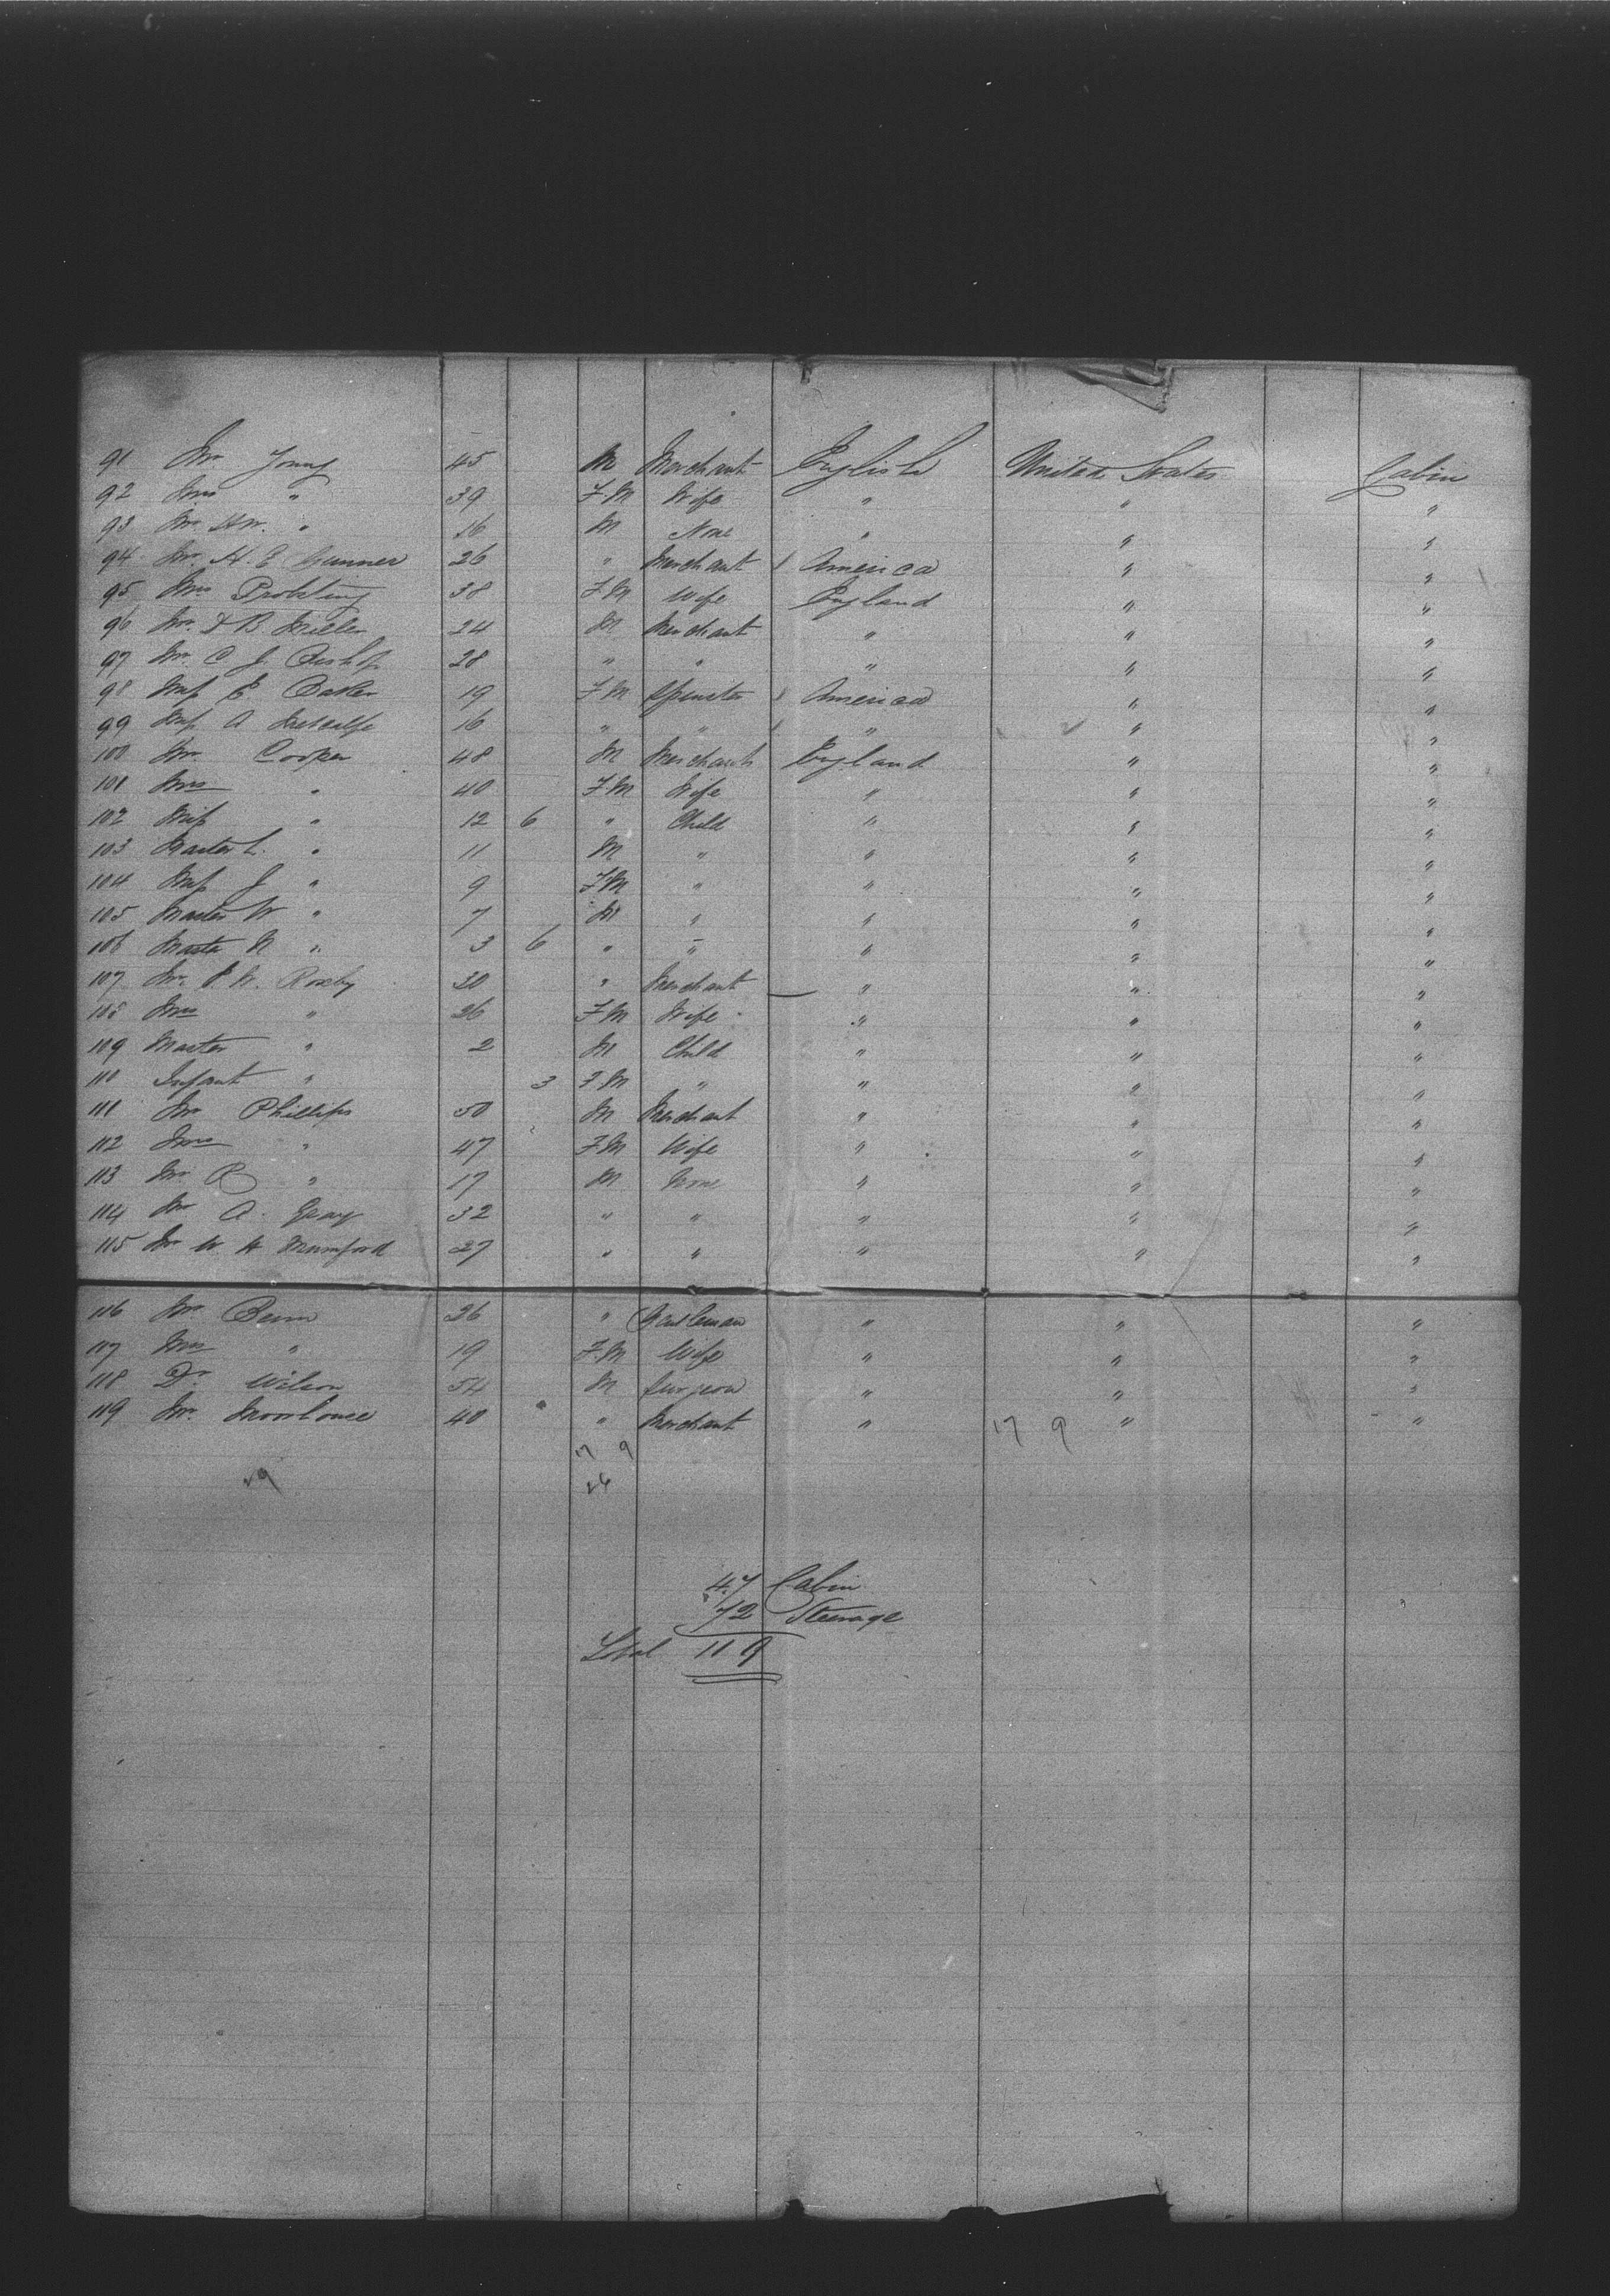 91 Mr Young 45 M Merchant English United States Cabin
92 Mrs " 39 FM Wife " " "
93 Mr " 16 M None " " "
94 Mr. H. E Gunner 26 " Merchant America " "
95 Mrs 38 FM Wife England " "
96 Mr. B. Miller 24 M Merchant " " "
97 Mr. C J. Bishop 28 " " " " "
98 Miss E 19 FM Spinster America " "
99 Miss A Metcalfe 16 " " " " "
100 Mr Cooper 48 M Merchant England " "
101 Mrs " 40 FM Wife " " "
102 Miss " 12 6 " Child " " "
103 Master L. " 11 M " " " "
104 Miss J " 9 FM " " " "
105 Master W " 7 M " " " "
106 Master N " 3 6 " " " " "
107 Mr. W. Roxby 30 " Merchant " " "
108 Mrs " 26 FM Wife " " "
109 Master " 2 M Child " " "
110 Infant " 3 FM " " " "
111 Mr Phillips 50 M Merchant " " "
112 Mrs " 47 FM Wife " " "
113 Mr R " 17 M None " " "
114 Mr A. Gray 32 " " " " "
115 Mr W H Mumford 27 " " " " "
116 Mr 26 " Gentleman " " "
117 Mrs " 19 FM Wife " " "
118 Dr. Wilson 54 M Surgeon " " "
119 Mr. Moorhouse 40 " Merchant " 17 9 " "
17 9
29 26
47 Cabin
72 Steerage
Total 119